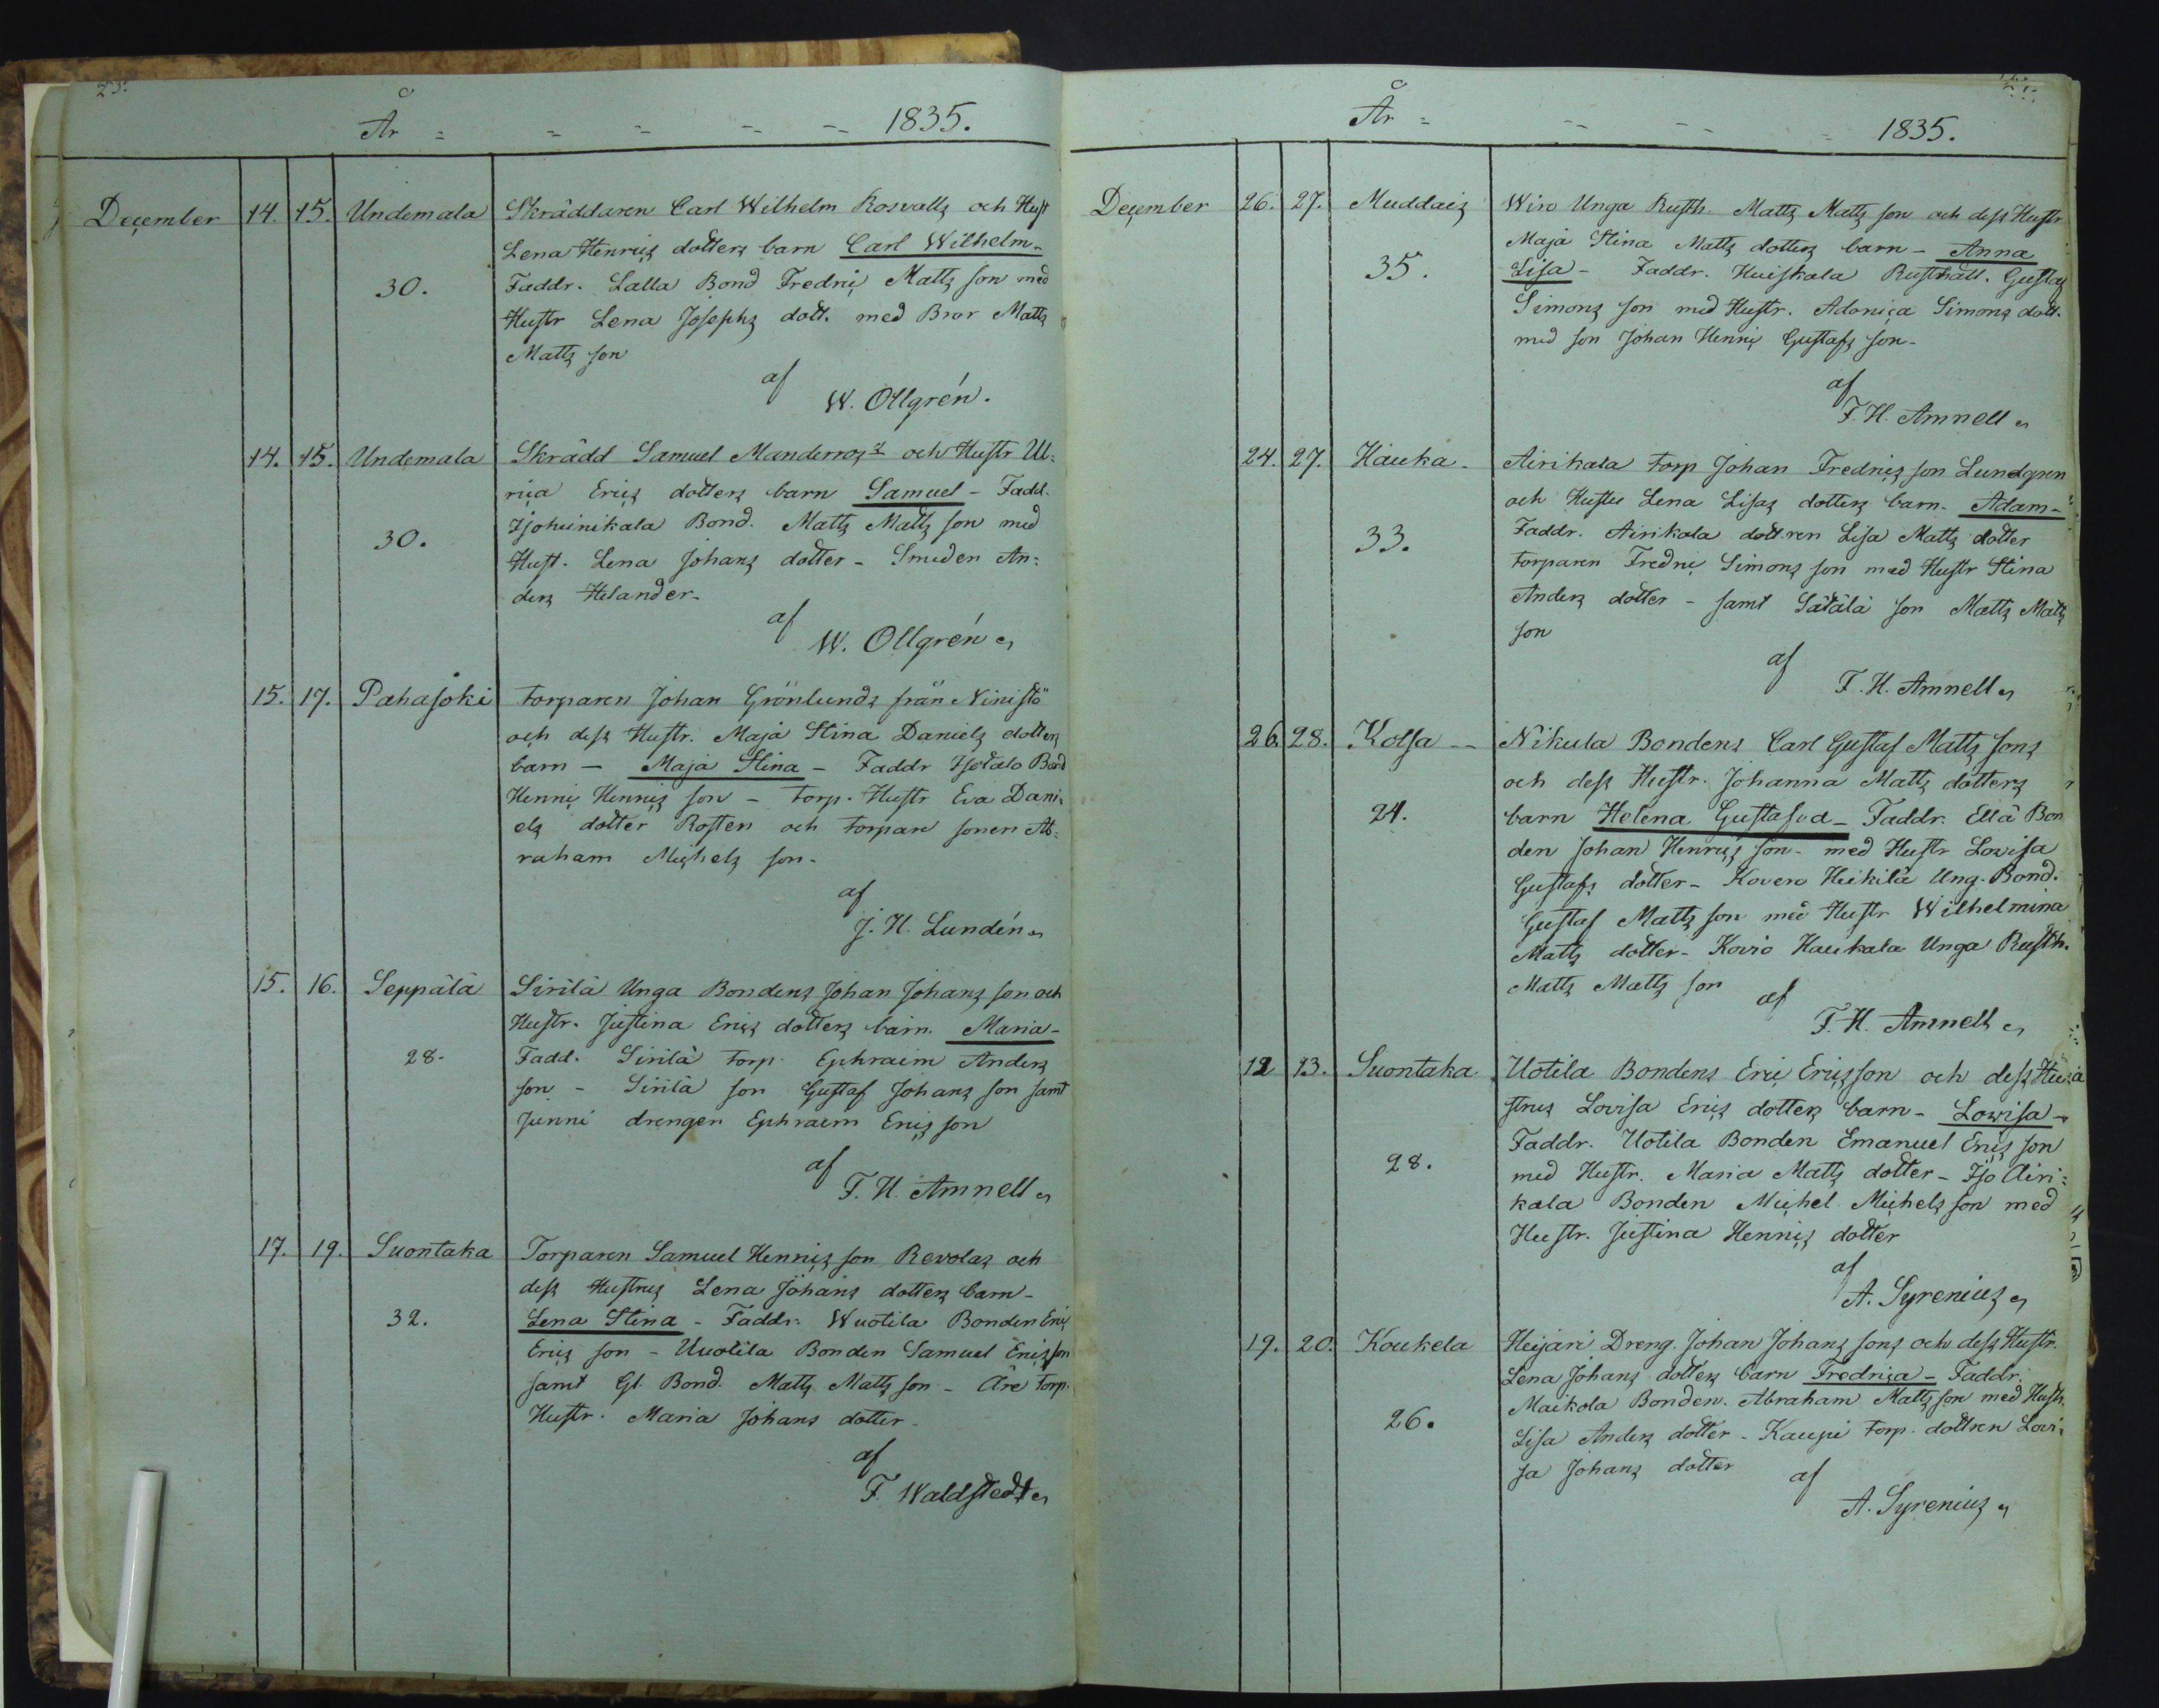 25.
År = = = = = 1835.
December 14. 15. Undemala Skräddaren Carl Wilhelm Rosvalls och Hust
Lena Henrics dotters barn Carl Wilhelm –
30. Faddr. Lalla Bond Fredric Matts son med
Hustr Lena Josephs dott. med Bror Matts
Matts son
af
W. Ollgrén.
14. 15. Undemala Skrädd Samuel Manderros och Hustr Ul:
rica Erics dotters barn Samuel – Fadd.
Ijoheinikala Bond. Matts Matts son med
30.
Hust. Lena Johans dotter – Smeden An:
ders Helander –
af
W. Ollgrén
15. 17. Pahajoki torparen Johan Grönlunds från Ninistö
och dess Hustr. Maja Stina Daniels dotters
barn – Maja Stina – Faddr Isotalo Bond
Henric Henrics son – torp. Hustr Eva Dani:
els dotter Rosten och torpare sonen Ab:
raham Michels son –
af
J. H. Lundén
15. 16. Seppälä Sirilä Unga Bondens Johan Johans son och
Hustr. Justina Erics dotters barn. Maria –
28. Fadd. Sirilä torp. Ephraim Anders
son – Sirilä son Gustaf Johans son samt
Junni drengen Ephraim Erics son
af
F. H. Amnell
17. 19. Suontaka Torparen Samuel Henrics son Revolas och
dess Hustrus Lena Johans dotters barn –
32. Lena Stina – Faddr. Wuotila Bonden Eric
Erics son – Uuotila Bonden Samuel Erics son
samt Gl. Bond. Matts Matts son – Äre torp.
Hustr. Maria Johans dotter –
af
F. Waldstedt
År = = = = 1835.
December 26. 27. Muddais Wiro Unga Rusth. Matts Matts son och dess Hustr
Maja Stina Matts dotters barn – Anna
35. Lisa – Faddr. Huiskala Rusthåll. Gustaf
Simons son med Hustr. Adonica Simons dott.
med son Johan Henric Gustafs son –
af
F. H. Amnell
24. 27. Hauka – Airikala torp Johan Fredrics son Lundgren
och Hustrus Lena Lisas dotters barn. Adam –
33. Faddr. Airikala dottren Lisa Matts dotter
torparen Fredric Simons son med Hustr Stina
Anders dotter – samt Sätälä son Matts Matts
son
af
F. H. Amnell
26. 28. Kolsa – – Nikula Bondens Carl Gustaf Matts sons
och dess Hustr. Johanna Matts dotters
24. barn Helena Gustafva – Faddr. Ellä Bon
den Johan Henrics son – med Hustr Lovisa
Gustafs dotter – Kovero Heikilä Ung. Bond.
Gustaf Matts son med Hustr Wilhelmina
Matts dotter – Kovio Haukala Unga Rusth.
Matts Matts son
af
F. H. Amnell
12 13. Suontaka Uotila Bondens Eric Erics son och dess Hu
strus Lovisa Erics dotters barn – Lowisa –
Faddr. Uotila Bonden Emanuel Erics son
28. med Hustr. Maria Matts dotter – Iso Airi:
kala Bonden Michel Michels son med
Hustr. Justina Henrics dotter
af
A. Syrenius
19. 20. Koukela Heijari Dreng. Johan Johans sons och dess Hustr.
Lena Johans dotters barn Fredrica – Faddr.
Maikola Bonden. Abraham Matts son med Hustr.
26. Lisa Anders dotter – Kaupi torp. dottren Lovi:
sa Johans dotter
af
A. Syrenius